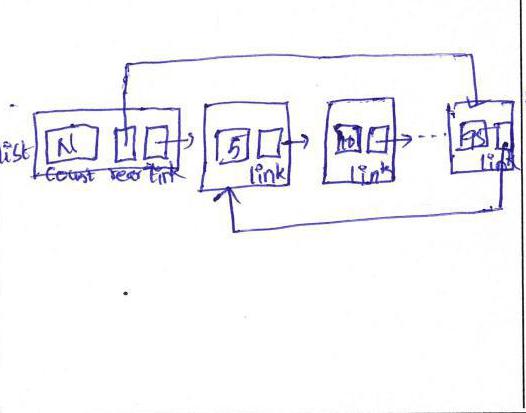 list
N
count rear link
5
link
10
link
...
link